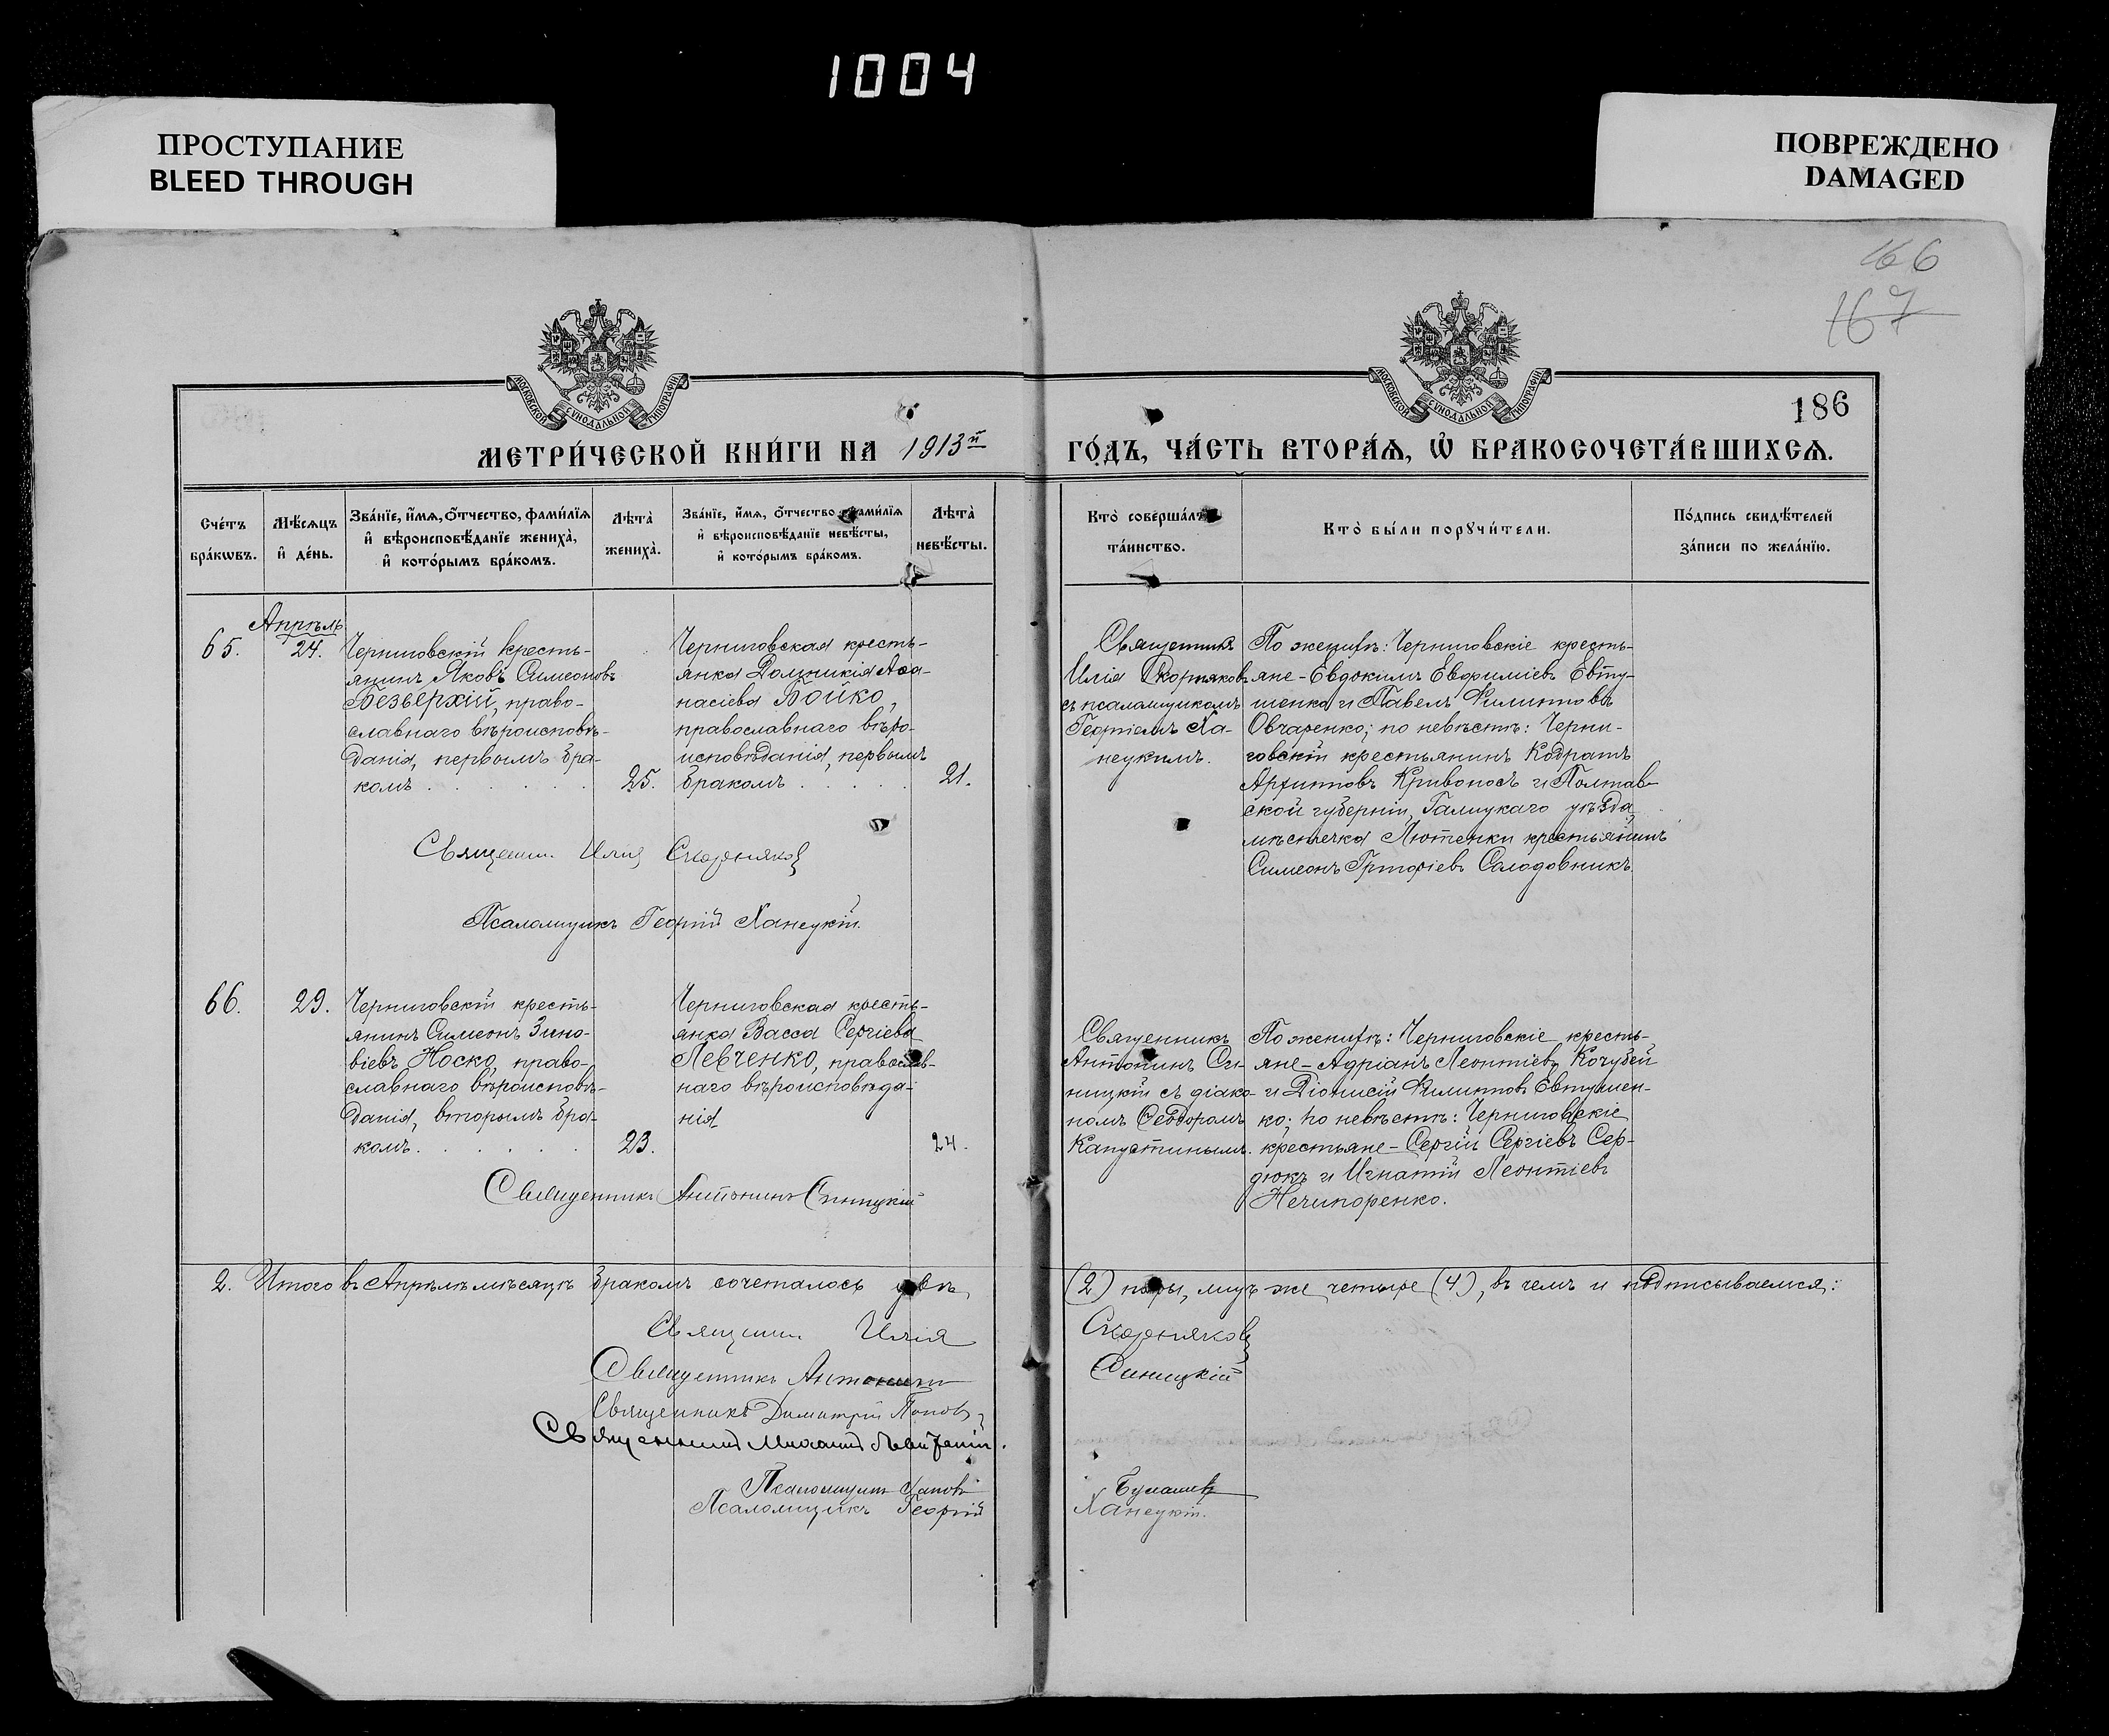 1004
ПРОСТУПАНИЕ
BLEED THROUGH
ПОВРЕЖДЕНО
DAMAGED
166
167
186
МОСКОВСКОЙ СѴНОДАЛЬНОЙ ТИПОГРАФІИ
МОСКОВСКОЙ СѴНОДАЛЬНОЙ ТИПОГРАФІИ
МЕТРИ́ЧЕСКОЙ КНИ́ГИ НА 1913й ГО́ДЪ, ЧА́СТЬ ВТОРА́Ѧ, Ѽ БРАКОСОЧЕТА́ВШИХСѦ.
Сче́тъ
бра́кѡвъ.
Мѣ́сѧцъ
и҆ де́нь.
Зва́нїе, и҆́мѧ, ѻ҆́тчество, фами́лїѧ
и҆ вѣроисповѣ́данїе жениха̀,
и҆ кото́рымъ бра́комъ.
Лѣта̀
жениха̀.
Зва́нїе, и҆́мѧ, ѻ҆́тчество, фами́лїѧ
и҆ вѣроисповѣ́данїе невѣ́сты,
и҆ кото́рымъ бра́комъ.
Лѣта̀
невѣ́сты.
Кто̀ соверша́лъ
та́инство.
Кто̀ бы́ли порꙋчи́тели.
По́дпись свидѣ́телей
за́писи по жела́нїю.
Апрѣль
65.
24.
Черниговскій кресть-
янинъ Яковъ Симеоновъ
Безверхій, право-
славнаго вѣроисповѣ-
данія, первымъ бра-
комъ . . . . . .
25.
Черниговская кресть-
янка Домникія Аѳа-
насіева Бойко,
православнаго вѣро-
исповѣданія, первымъ
бракомъ . . . . .
21.
Священникъ
Илія Скорняковъ
съ псаломщикомъ
Георгіемъ Ха-
нецкимъ.
По женихѣ: Черниговскіе кресть-
яне - Евдокимъ Евфиміевъ Евту-
шенко и Павелъ Филиповъ
Овчаренко; по невѣстѣ: Черни-
говскій крестьянинъ Кодратъ
Архиповъ Кривоносъ и Полтав-
ской губерніи, Гадяцкаго уѣзда,
мѣстечка Лютенки крестьянинъ
Симеонъ Григоріевъ Солодовникъ.
Священ. Илія Скорняковъ
Псаломщикъ Георгій Ханецкій.
66.
29.
Черниговскій кресть-
янинъ Симеонъ Зино-
віевъ Носко, право-
славнаго вѣроисповѣ-
данія, вторымъ бра-
комъ . . . . . .
23.
Черниговская кресть-
янка Васса Сергіева
Левченко, православ-
наго вѣроисповѣда-
нія
24.
Священникъ
Антонинъ Си-
ницкій съ діако-
номъ Ѳеодоромъ
Капустинымъ.
По женихѣ: Черниговскіе кресть-
яне - Адріанъ Леонтіевъ Кочубей
и Діонисій Филиповъ Евтушен-
ко; по невѣстѣ: Черниговскіе
крестьяне - Сергій Сергіевъ Сер-
дюкъ и Игнатій Леонтіевъ
Нечипоренко.
Священникъ Антонинъ Синицкій
2. Итого въ Апрѣлѣ мѣсяцѣ бракомъ сочеталось двѣ (2) пары, лицъ же четыре (4), въ чемъ и подписываемся:
Священ. Илія Скорняковъ
Священникъ Антонинъ Синицкій
Священникъ Димитрій Поповъ
Священникъ Михаилъ
Псаломщикъ
Псаломщикъ Георгій Ханецкій.